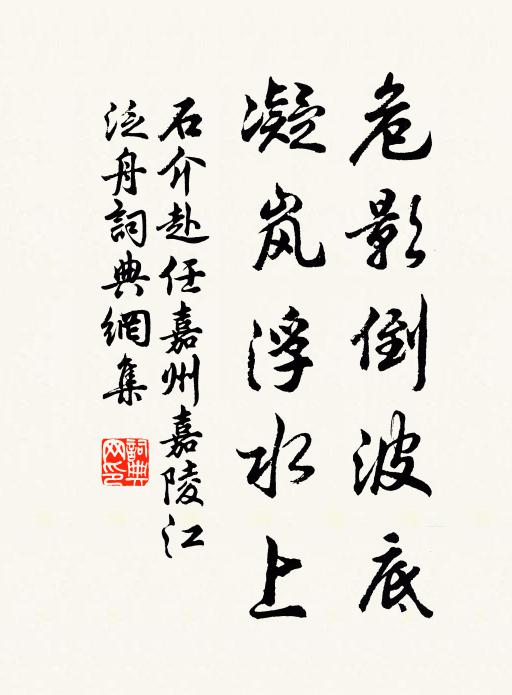 危影倒波底
凝岚浮水上
石介赴任嘉州嘉陵江
泛舟詞典網集
詞典网印